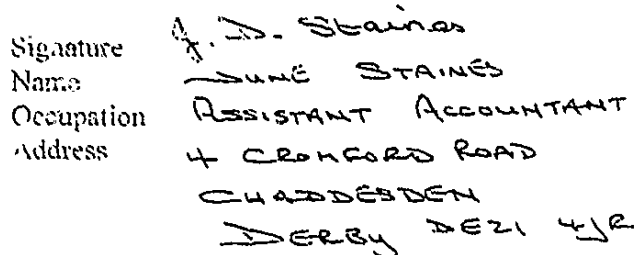 Signature J. D. Staines
Name JUNE STAINES
Occupation ASSISTANT ACCOUNTANT
Address 4 CROMFORD ROAD
CHADDESDEN
DERBY DE21 4JR